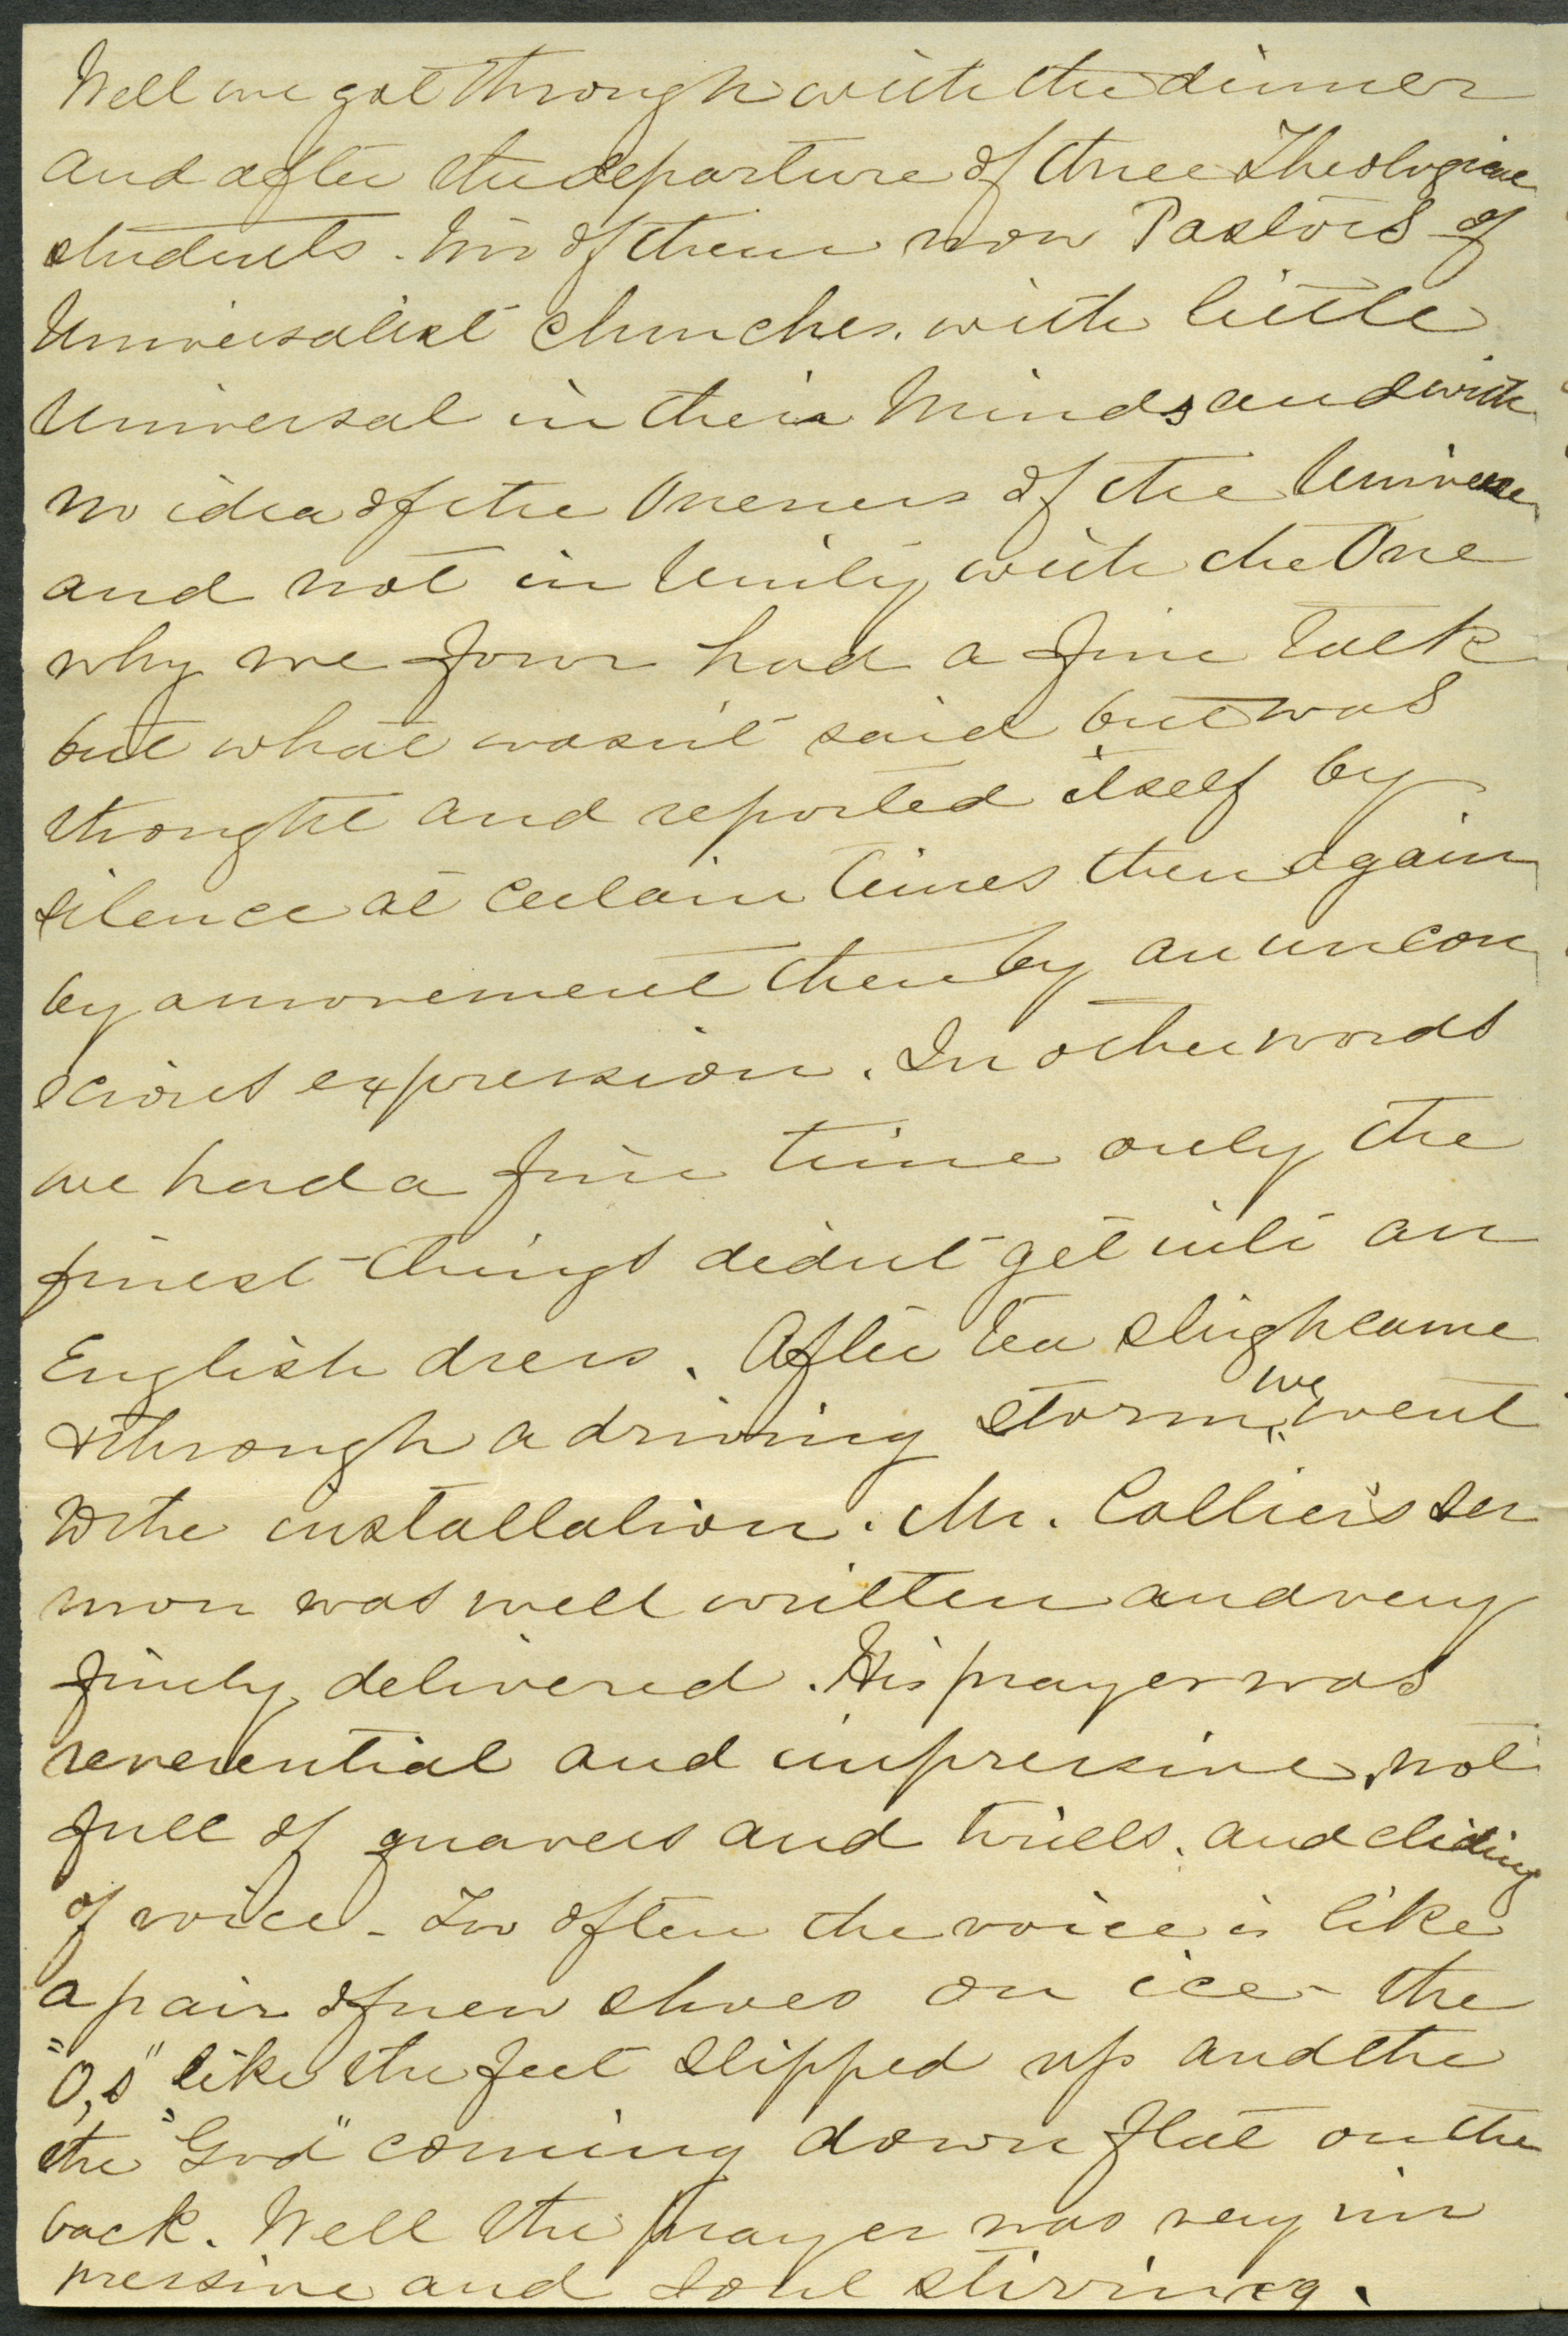 Well we got through with the dinner
and after the departure of three Theological
students. two of them now Pastors of
Universalist Churches. with little
Universal in their Minds and with
no idea of the Oneness of the Universe
and not in Unity with the One
why we four had a fine talk
but what wasn't said but was
thought and reported itself by
silence at certain times then again
by a movement then by an uncon
scious expression. In other words
we had a fine time only the
finest things didn't get into an
English dress. After tea sleigh came
& through a driving storm we went
to the installation. Mr. Collier's ser
mon was well written and very
finely delivered. His prayer was
reverential and impressive, not
full of quavers and trills. and sliding
of voice - Too often the voice is like
a pair of new shoes on ice - the
"O,s" like the feet slipped up and the
the "God" coming down flat on the
back. Well the prayer was very im
pressive and soul stirring.